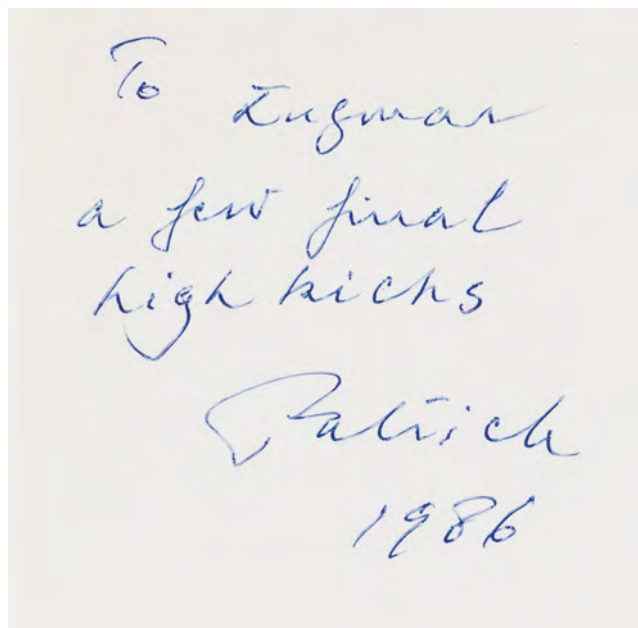 To Ingmar
a few final
high kicks
Patrick
1986